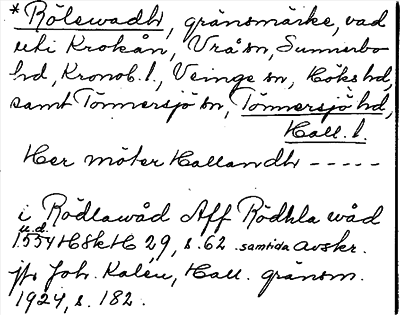 * Rölewadh, gränsmärke, vad
uti Krokån, Vrå sn, Sunnerbo
hd, Kronob. l., Veinge sn, Höks hd,
samt Tönnersjö sn, Tönnersjö hd,
Hall. l.
Her möter Hallandh -----
i Rödlawåd Aff Rödhla wåd
u.d.
1554 HSkH 29, s. 62. samtida avskr.
jfr Joh. Kalén, Hall. gränsm.
1924, s. 182.